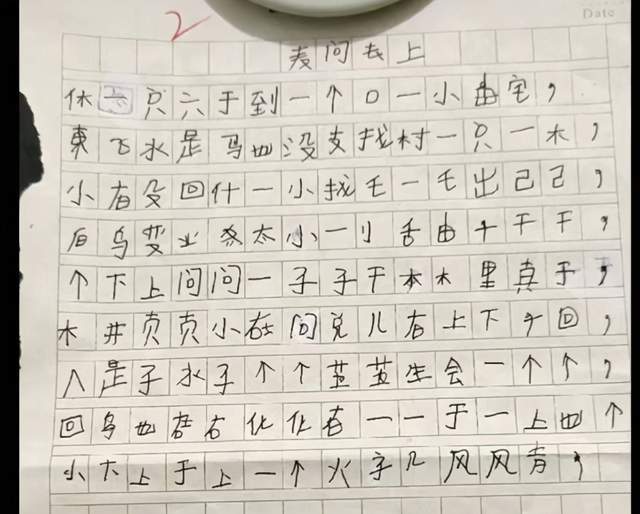 2
Date
问 上
休 只六于到一个口一小由宅，
東飞水是马也没支找村一只一木，
小右没回什一小找毛一毛出己己，
后乌变业 太小一小舌由十干干，
个下上问问一子子干本木里真于，
木井页页小在问兑儿右上下 回，
人是子水子个个 生会一个个，
回乌也 右化化右一一于一上也个
小 上于上一个火字几风风青，